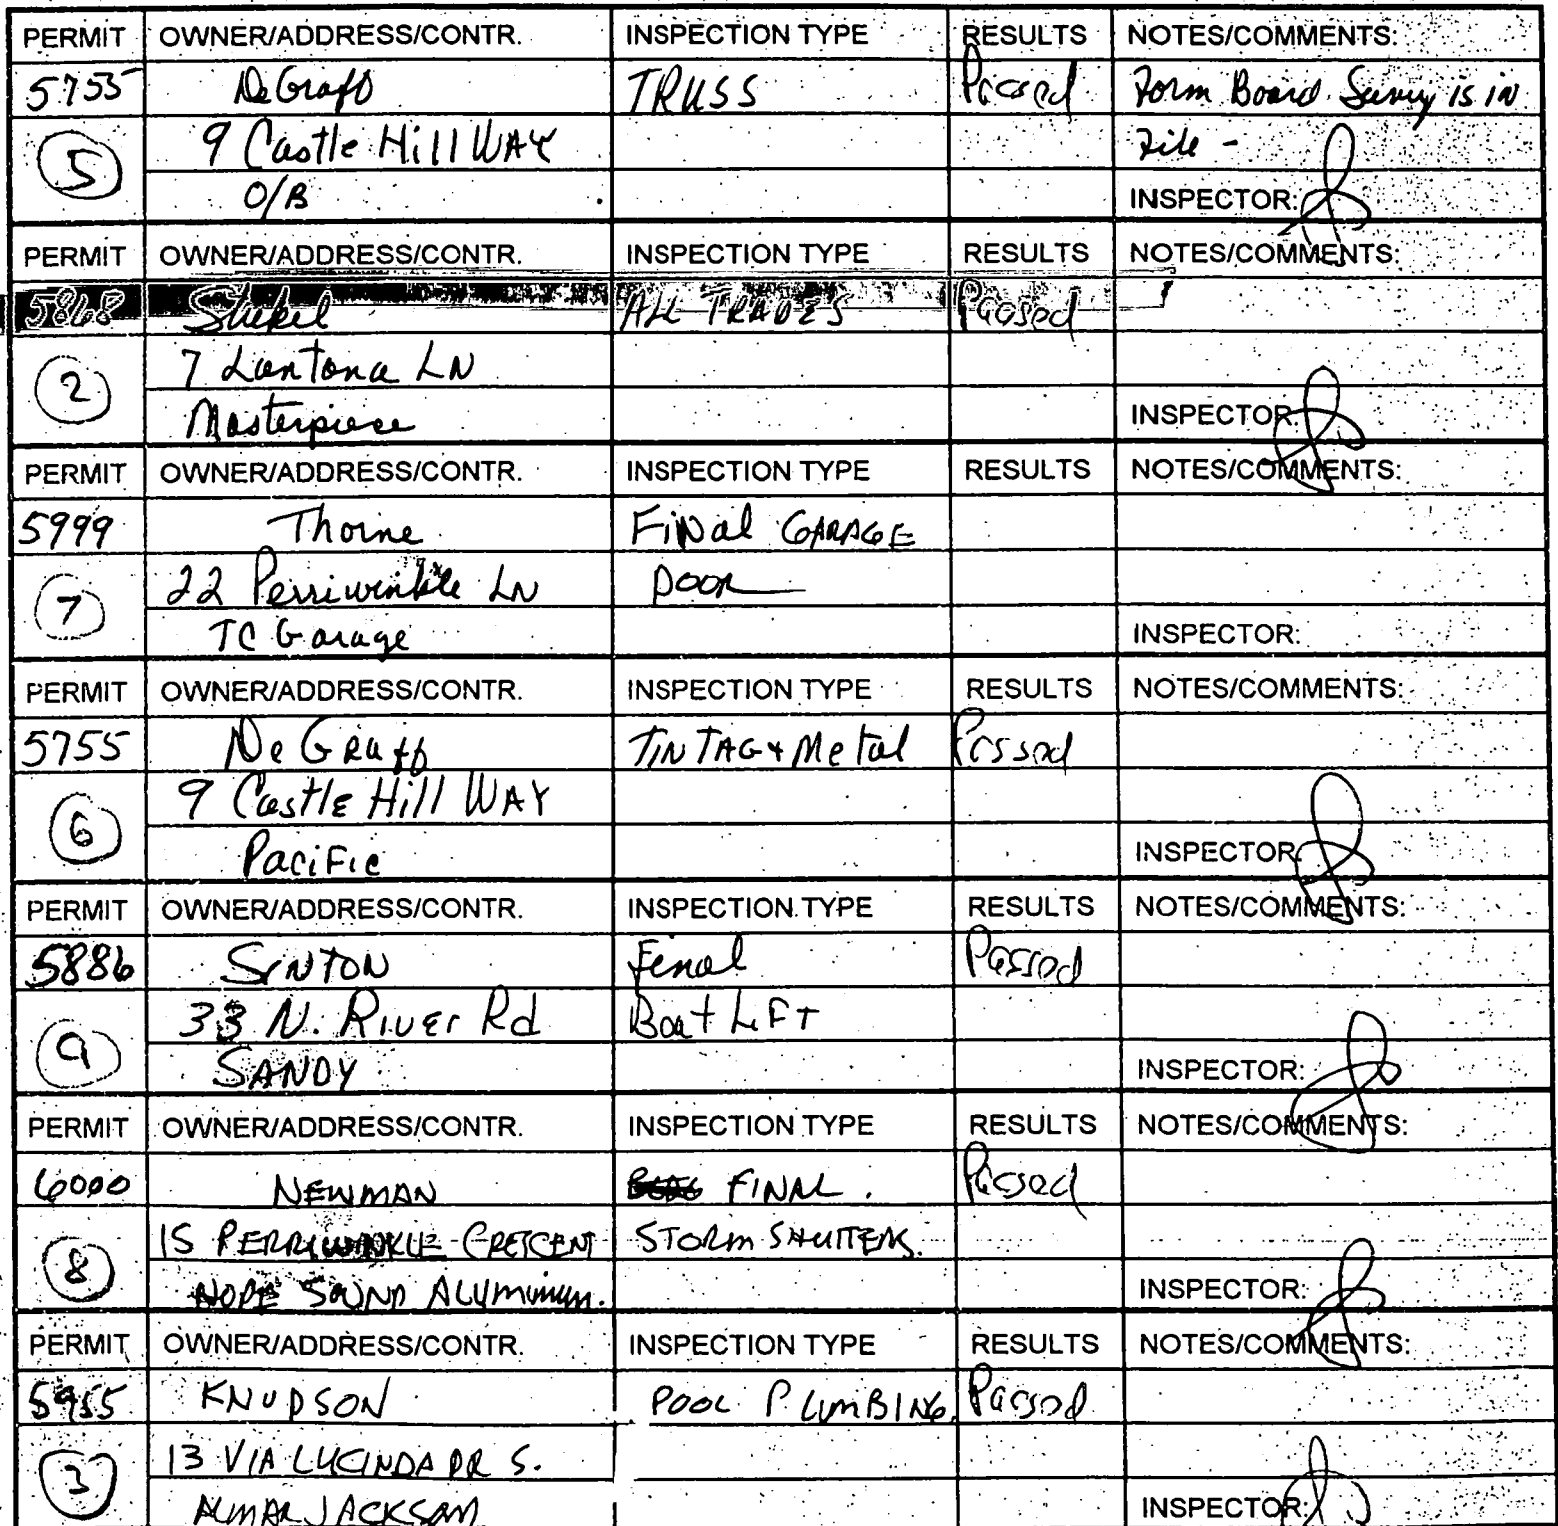 PERMIT OWNER/ADDRESS/CONTR. INSPECTION TYPE RESULTS NOTES/COMMENTS:
5755 DeGraff TRUSS Passed Form Board Survey is in
5 9 Castle Hill WAY File -
O/B INSPECTOR:
PERMIT OWNER/ADDRESS/CONTR. INSPECTION TYPE RESULTS NOTES/COMMENTS:
5868 ALL TRADES Passed
2 7 Lantona LN
Masterpiece INSPECTOR:
PERMIT OWNER/ADDRESS/CONTR. INSPECTION TYPE RESULTS NOTES/COMMENTS:
5999 Thorne Final GARAGE
7 22 Perriwinkle LN DOOR
TC Garage INSPECTOR:
PERMIT OWNER/ADDRESS/CONTR. INSPECTION TYPE RESULTS NOTES/COMMENTS:
5755 DeGraff TIN TAG + Metal Passed
6 9 Castle Hill WAY
Pacific INSPECTOR:
PERMIT OWNER/ADDRESS/CONTR. INSPECTION TYPE RESULTS NOTES/COMMENTS:
5886 SINTON Final Passed
9 33 N. River Rd Boat Lift
SANDY INSPECTOR:
PERMIT OWNER/ADDRESS/CONTR. INSPECTION TYPE RESULTS NOTES/COMMENTS:
6000 NEWMAN FINAL. Passed
8 15 PERRIWINKLE CRESCENT STORM SHUTTERS.
HOBE SOUND ALUMINUM. INSPECTOR:
PERMIT OWNER/ADDRESS/CONTR. INSPECTION TYPE RESULTS NOTES/COMMENTS:
5955 KNUDSON POOL PLUMBING Passed
3 13 VIA LUCINDA DR S.
ALMAR JACKSON INSPECTOR: